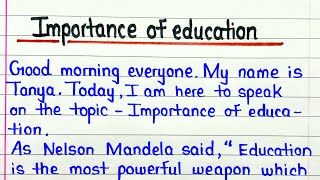 Importance of education
Good morning everyone. My name is
Tanya. Today, I am here to speak
on the topic - Importance of educa-
tion.
As Nelson Mandela said, " Education
is the most powerful weapon which